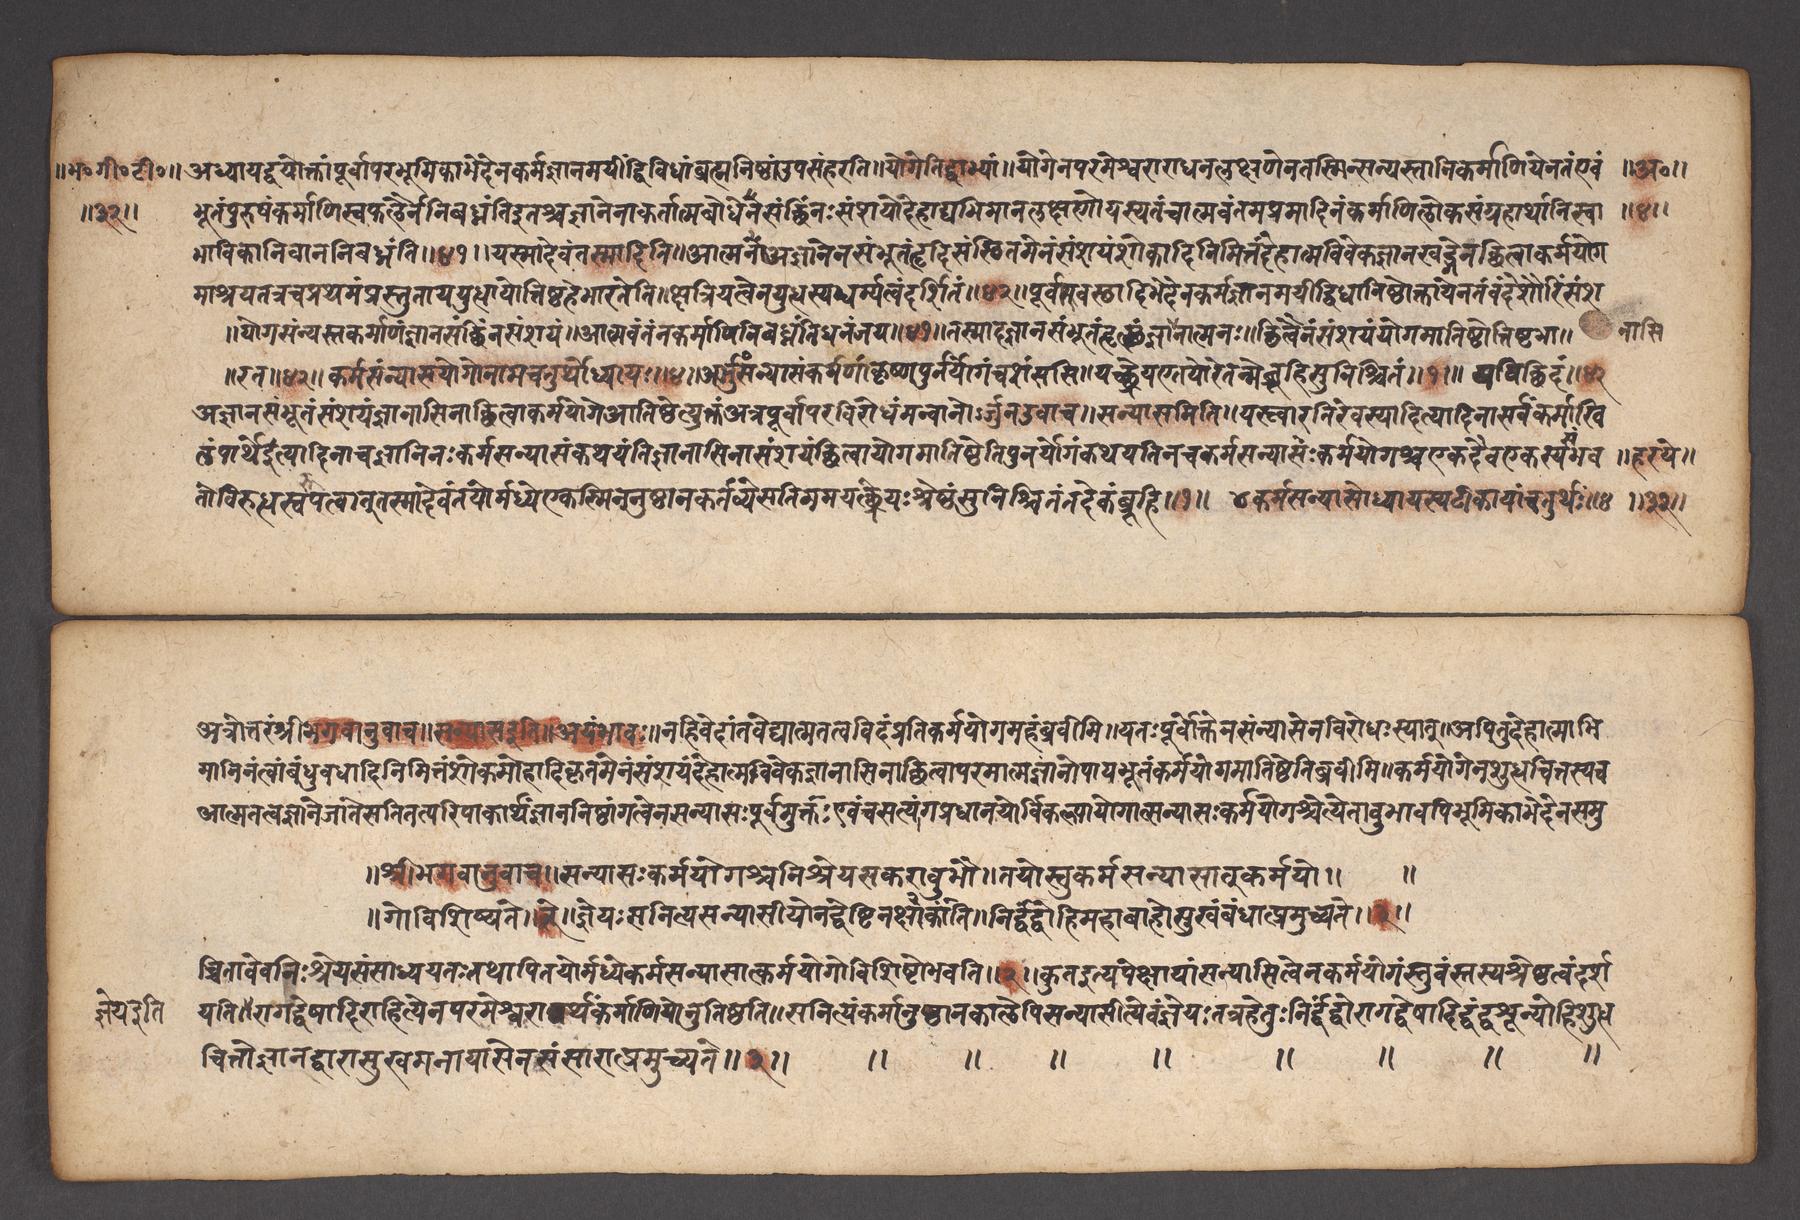 ॥भ०गी०टी०॥ अध्यायद्वयोक्तांपूर्वापरभूमिकाभेदेनकर्मज्ञानमयींद्विविधांब्रह्मनिष्ठांउपसंहरति॥योगेतिद्वाभ्यां॥योगेनपरमेश्वराराधनलक्षणेनतस्मिन्सन्यस्तानिकर्माणियेनतंएवं ॥अ०॥
॥३२॥ भूतंपुरुषंकर्माणिस्वफलैर्ननिबध्नंतिदुतश्चज्ञानेनाकर्तात्मबोधेनसंछिंनःसंशयोदेहाद्यभिमानलक्षणोयस्यतंचात्मवंतमप्रमादिनंकर्माणिलोकसंग्रहार्थानिस्वा ॥४॥
भाविकानिवाननिबध्नंति॥४१॥यस्मादेवंतस्मादिति॥आत्मनोअज्ञानेनसंभूतंहृदिसंस्थितमेनंसंशयंशोकादिनिमित्तंदेहात्मविवेकज्ञानखड्गेनछित्वाकर्मयोग
माश्रयतत्रचप्रथमंप्रस्तुताययुधायोत्तिष्ठहेभारतेति॥क्षत्रियत्वेनयुधस्यधर्म्यत्वंदर्शितं॥४२॥पूर्वमवस्छादिभेदेनकर्मज्ञानमयीद्विधानिष्ठोक्तायेनतंवंदेशौरिंसंश
॥योगसंन्यस्तकर्माणंज्ञानसंछिनसंशयं॥आत्मवंतंनकर्माणिनिबध्नंतिधनंजय॥४१॥तस्मादज्ञानसंभूतंहृत्छंज्ञानात्मनः॥छित्वैनंसंशयंयोगमातिष्टोत्तिष्टभा॥ नासि
॥रत॥४२॥ कर्मसंन्यासयोगोनामचतुर्थोध्यायः॥४॥अर्जु॥संन्यासंकर्मणांकृष्णपुनर्योगंचशंससि॥यच्छ्रेयएतयोरेतन्मेब्रूहिसुनिश्चितं॥१॥ यपिछिदं॥४२
अज्ञानसंभूतंसंशयंज्ञानासिनाछित्वाकर्मयोगेआतिष्ठेत्युक्तंअत्रपूर्वापरविरोधंमन्वानोर्जुनउवाच॥सन्यासमिति॥यस्त्वारतिरेवस्यादित्यादिनासर्वंकर्माखि
लंपार्थेइत्यादिनाचज्ञानिनःकर्मसन्यासंकथयंतिज्ञानासिनासंशयंछित्वायोगमातिष्ठेतिपुनर्योगंकथयतिनचकर्मसन्यासःकर्मयोगश्चएकदैवएकस्यैभव ॥हरये॥
तोविरुध्यस्वपत्वात्तस्मादेवंतयोर्मध्येएकस्मिन्ननुष्ठानकर्तव्येसतिममयत्छ्रेयःश्रेष्ठंसुनिश्चितंतदेकंब्रूहि॥१॥ ४कर्मसन्यासोध्यायस्यटीकायांचतुर्थः॥४ ॥३२॥
अत्रोत्तरंश्रीभगवानुवाच॥सन्यासइति॥अयंभावः॥नहिवेदांतवेद्यात्मतत्वविदंप्रतिकर्मयोगमहंब्रवीमि॥यतःपूर्वोक्तेनसंन्यासेनविरोधःस्यात्॥अपितुदेहात्माभि
मानिनंत्वांबंधुवधादिनिमित्तंशोकमोहादिकृतमेनंसंशयंदेहात्मविवेकज्ञानासिनाछित्वापरमात्मज्ञानोपायभूतंकर्मयोगमातिष्ठेतिब्रवीमि॥कर्मयोगेनशुधचित्तस्यच
आत्मतत्वज्ञानेजातेसतितत्परिपाकार्थंज्ञाननिष्ठांगत्वेनसन्यासःपूर्वमुक्तंःएवंचसत्यंगप्रधानयोर्विकल्पायोगात्सन्यासःकर्मयोगश्चेत्येतावुभावपिभूमिकाभेदेनसमु
॥श्रीभगवानुवाच॥सन्यासःकर्मयोगश्चनिश्रेयसकरावुभौ॥तयोस्तुकर्मसन्यासात्कर्मयो॥ ॥
॥गोविशिष्यते॥२॥ज्ञेयःसनित्यसन्यासीयोनद्वेष्टिनकांक्षति॥निर्द्वंद्वोहिमहाबाहोसुखंबंधात्प्रमुच्यते॥३॥
च्चितावेवनिःश्रेयसंसाध्ययतःतथापितयोर्मध्येकर्मसन्यासात्कर्मयोगोविशिष्टोभवति॥२॥कुतइत्यपेक्षायांसन्यासित्वेनकर्मयोगंस्तुवंस्तस्यश्रेष्ठत्वंदर्श
ज्ञेयइति यति॥रागद्वेषादिराहित्येनपरमेश्वरार्थंकर्माणियोनुतिष्ठति॥सनित्यंकर्मानुष्ठानकालेपिसन्यासीत्येवंज्ञेयःतत्रहेतुःनिर्द्वंद्वोरागद्वेषादिद्वंद्वशून्योहिशुध
चित्तोज्ञानद्वारासुखमनायासेनसंसारात्प्रमुच्यते॥३॥ ॥ ॥ ॥ ॥ ॥ ॥ ॥ ॥